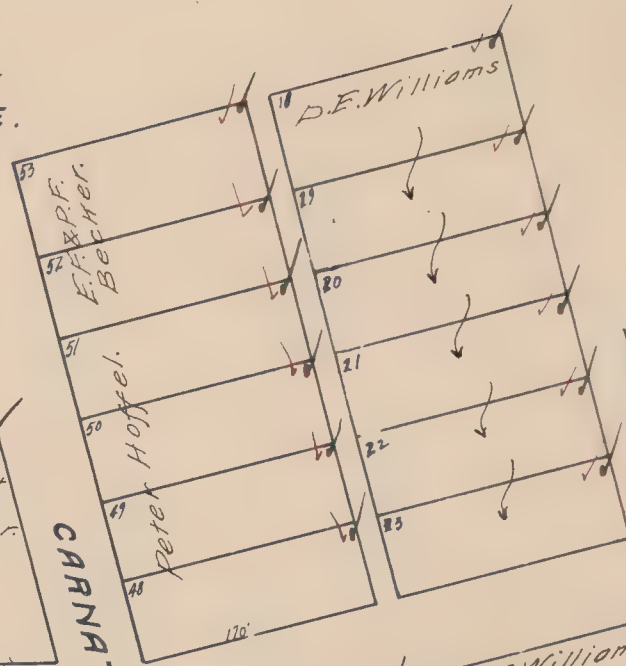 E.
53
E.F. & P.F.
Becher.
52
51
50
Peter Hoffel.
49
48
170'
CARNA
18
D.E. Williams
19
20
21
22
23
William